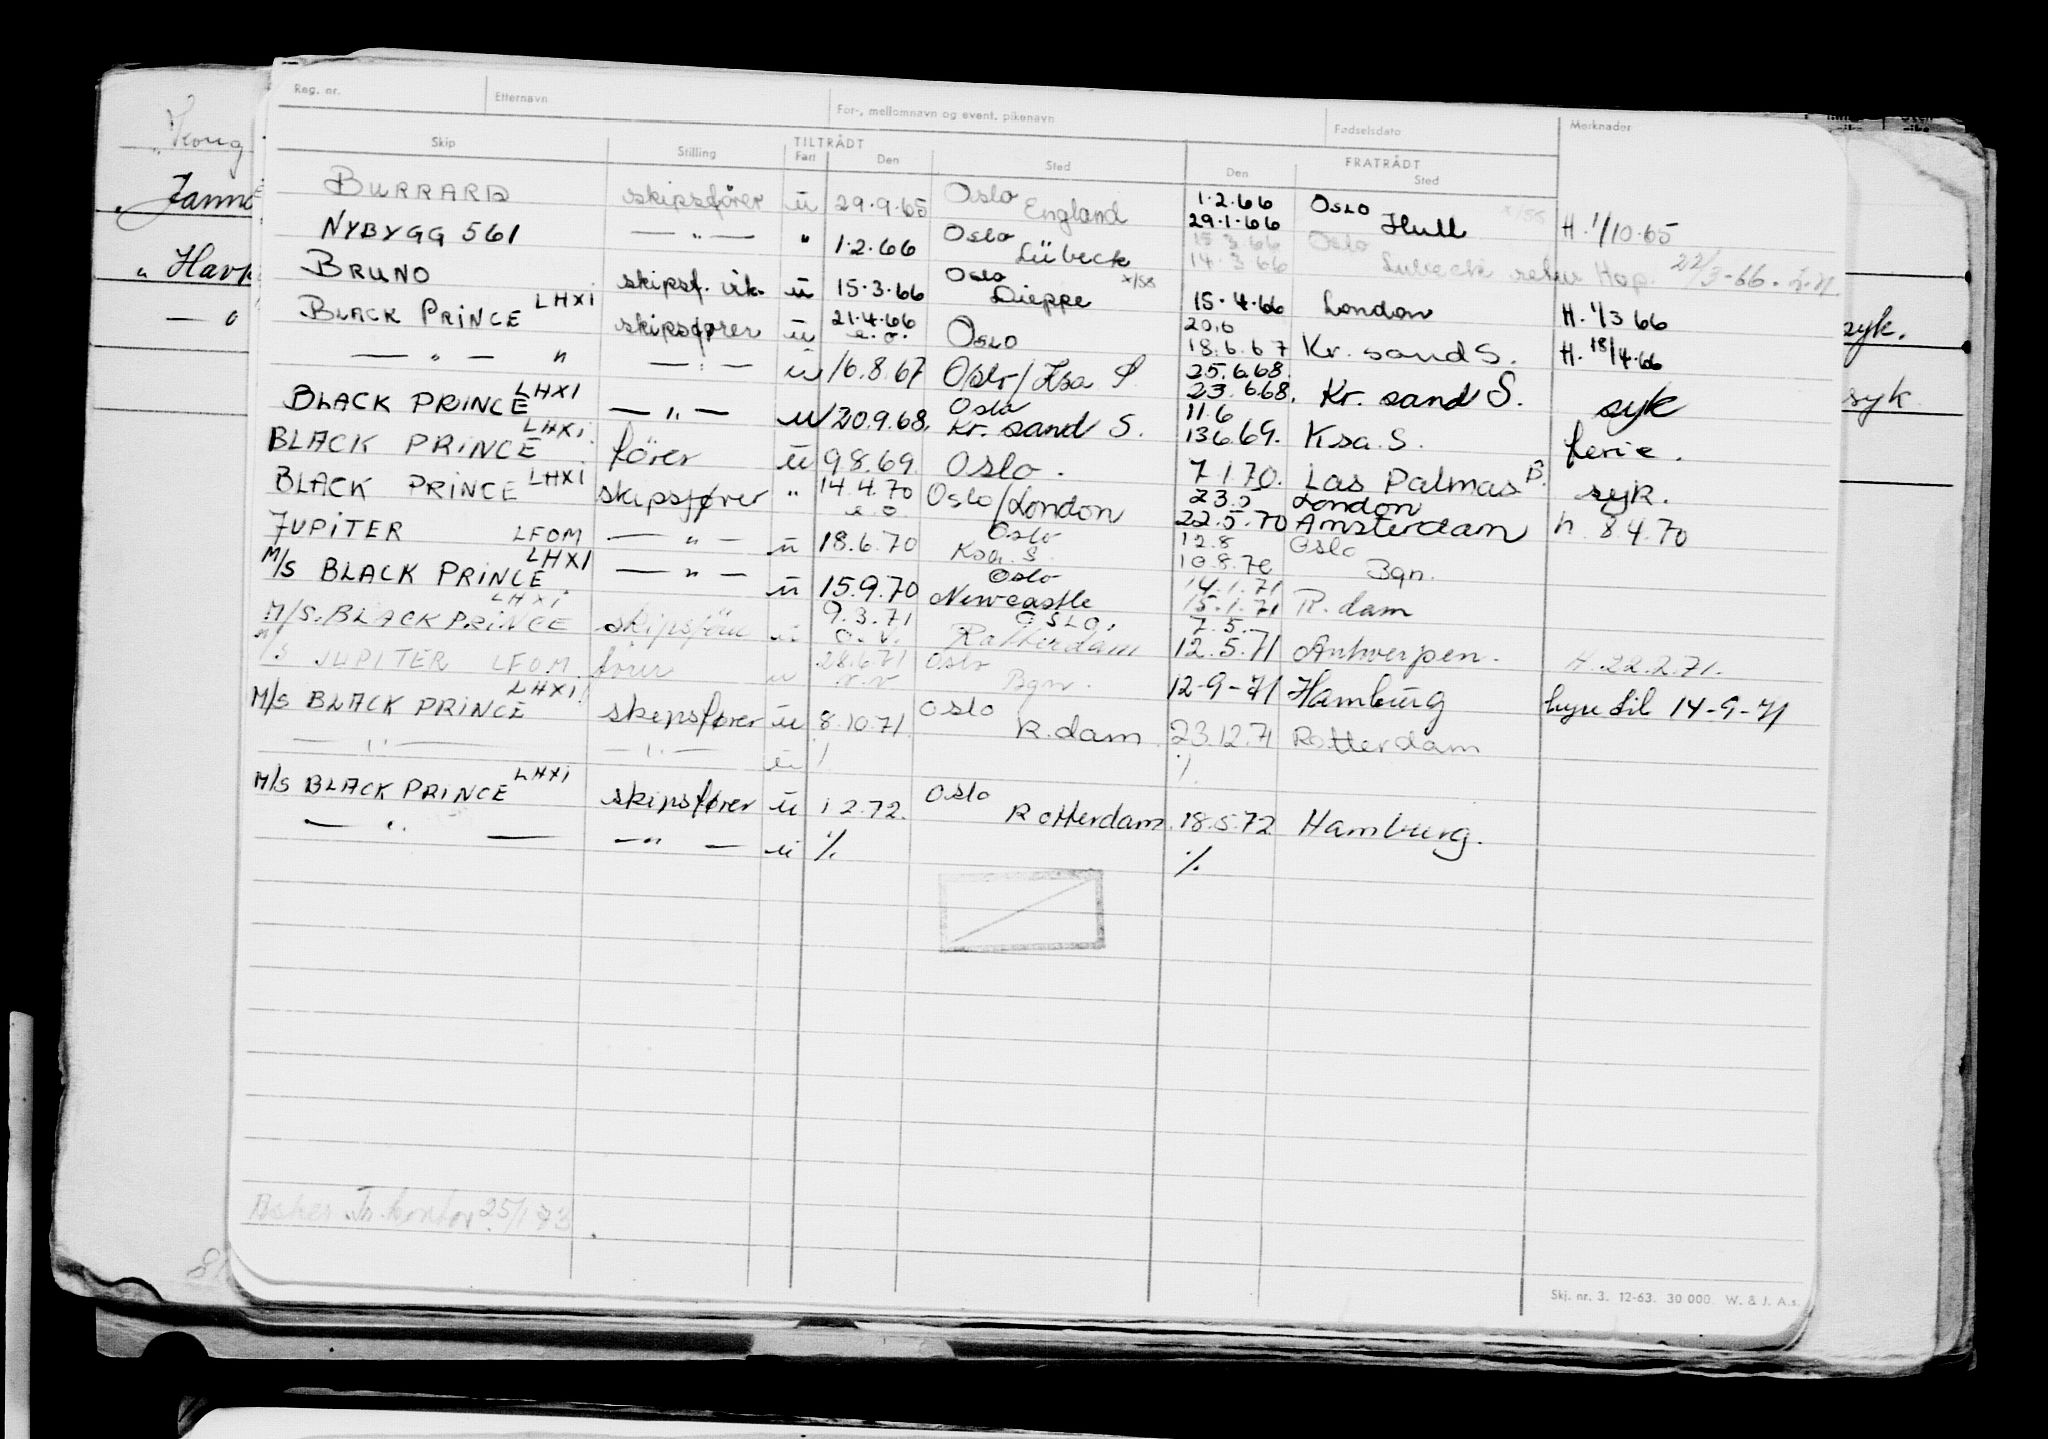 Reg. nr. Etternavn For-, mellomnavn og event. pikenavn Fødselsdato Merknader
TILTRÅDT FRATRÅDT
Skip Stilling Fart Den Sted Den Sted
BURRARD skipsfører u 29.9.65 Oslo England 1.2.66 29.1.66 Oslo Hull H. 1/10.65
NYBYGG 561 — " — " 1.2.66 Oslo Lübeck 15.3.66 14.3.66 Oslo Lübeck 22/3-66.
BRUNO skipsf. vik. u 15.3.66 Oslo Dieppe 15.4.66 London H. 1/3 66
BLACK PRINCE LHXI skipsfører u 21.4.66 e.o. Oslo 20.6 18.6.67 Kr. sand S. H. 18/4.66
— " — " — " — u 16.8.67 Oslo/Ksa S. 25.6.68. 23.6.68. Kr. sand S. syk
BLACK PRINCE LHXI — " — u 20.9.68. Oslo Kr. sand S. 11.6 13.6.69. Ksa. S. ferie.
BLACK PRINCE LHXI. fører u 9.8.69. Oslo. 7.1.70. Las Palmas syk.
BLACK PRINCE LHXI skipsfører " 14.4.70 e.o Oslo/London 23.5 22.5.70 London Amsterdam h. 8.4.70
JUPITER LFOM — " — u 18.6.70 Oslo Ksa. S. 12.8 10.8.70 Oslo Bgn.
M/S BLACK PRINCE LHXI — " — u 15.9.70 Oslo Newcastle 14.1.71 15.1.71 R.dam
M/S. BLACK PRINCE LHXI skipsføre u 9.3.71 OSLO. Rotterdam 7.5. 12.5.71 Antwerpen. H. 22.2.71.
M/S JUPITER LFOM fører u 28.6.71 Oslo Bgn. 12-9-71 Hamburg hyre til 14-9-71
M/S BLACK PRINCE LHXI skipsfører u 8.10.71. Oslo R.dam 23.12.71 Rotterdam
— " — — " — u ./. ./.
M/S BLACK PRINCE LHXI skipsfører u 1.2.72. Oslo Rotterdam. 18.5.72 Hamburg.
— " — — " — u ./. ./.
Skj. nr. 3. 12-63. 30 000. W. & J. A.s.
Kong
syk.
syk